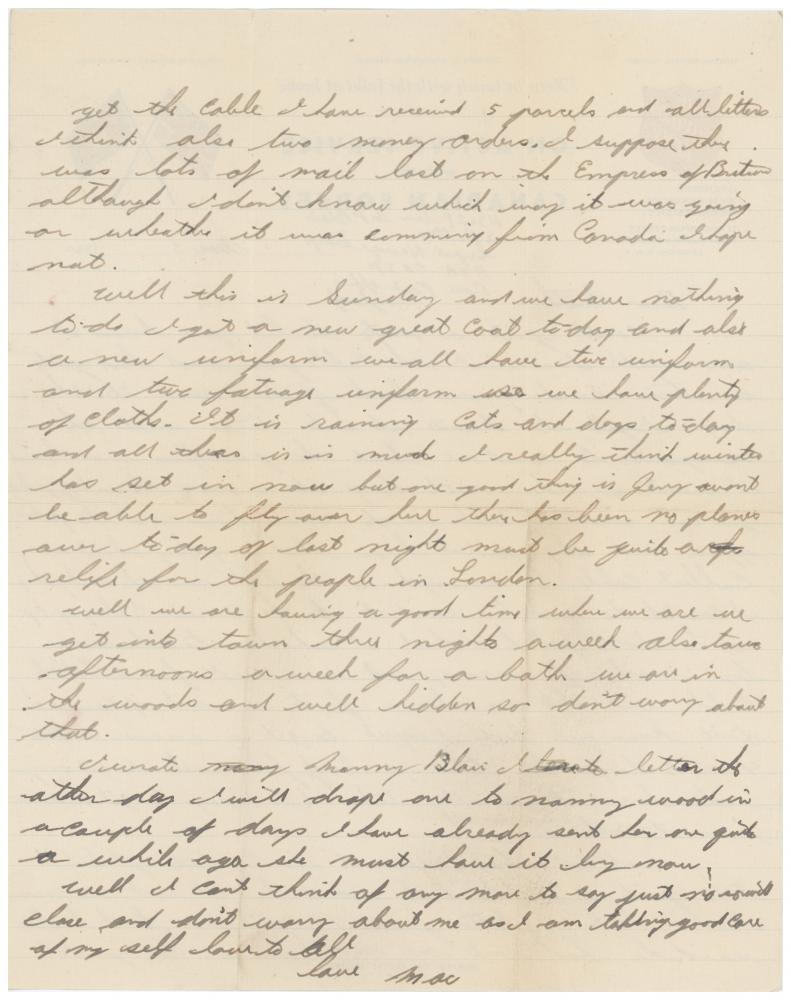 get the Cable I have receivd 5 parcels and all letters
I think also two money orders. I suppose ther
was lots of mail lost on the Empress of Britian
although I don't know which way it was going
or wheathe it was comming from Canada I hope
not.
Well this is Sunday and we have nothing
to do I got a new great Coat to-day and also
a new uniform we all have two uniform
and two fatuage uniform so we have plenty
of cloths. It is raining Cats and dogs to-day
and all ther is is mud I really think winter
has set in now but one good thing is Jerry wont
be able to fly over here ther has been no planes
over to-day of last night must be quite a
relife for the people in London.
well we are having a good time where we are we
get into town three nights a week also two
afternoons a week for a bath we are in
the woods and well hidden so don't worry about
that.
I wrote Nanny Blair I letter the
other day I will drope one to nanny wood in
a couple of days I have already sent her one quite
a while ago she must have it by now.
Well I cant think of any more to say just now will
close and don't worry about me as I am taking good care
of my self love to all
love Mac